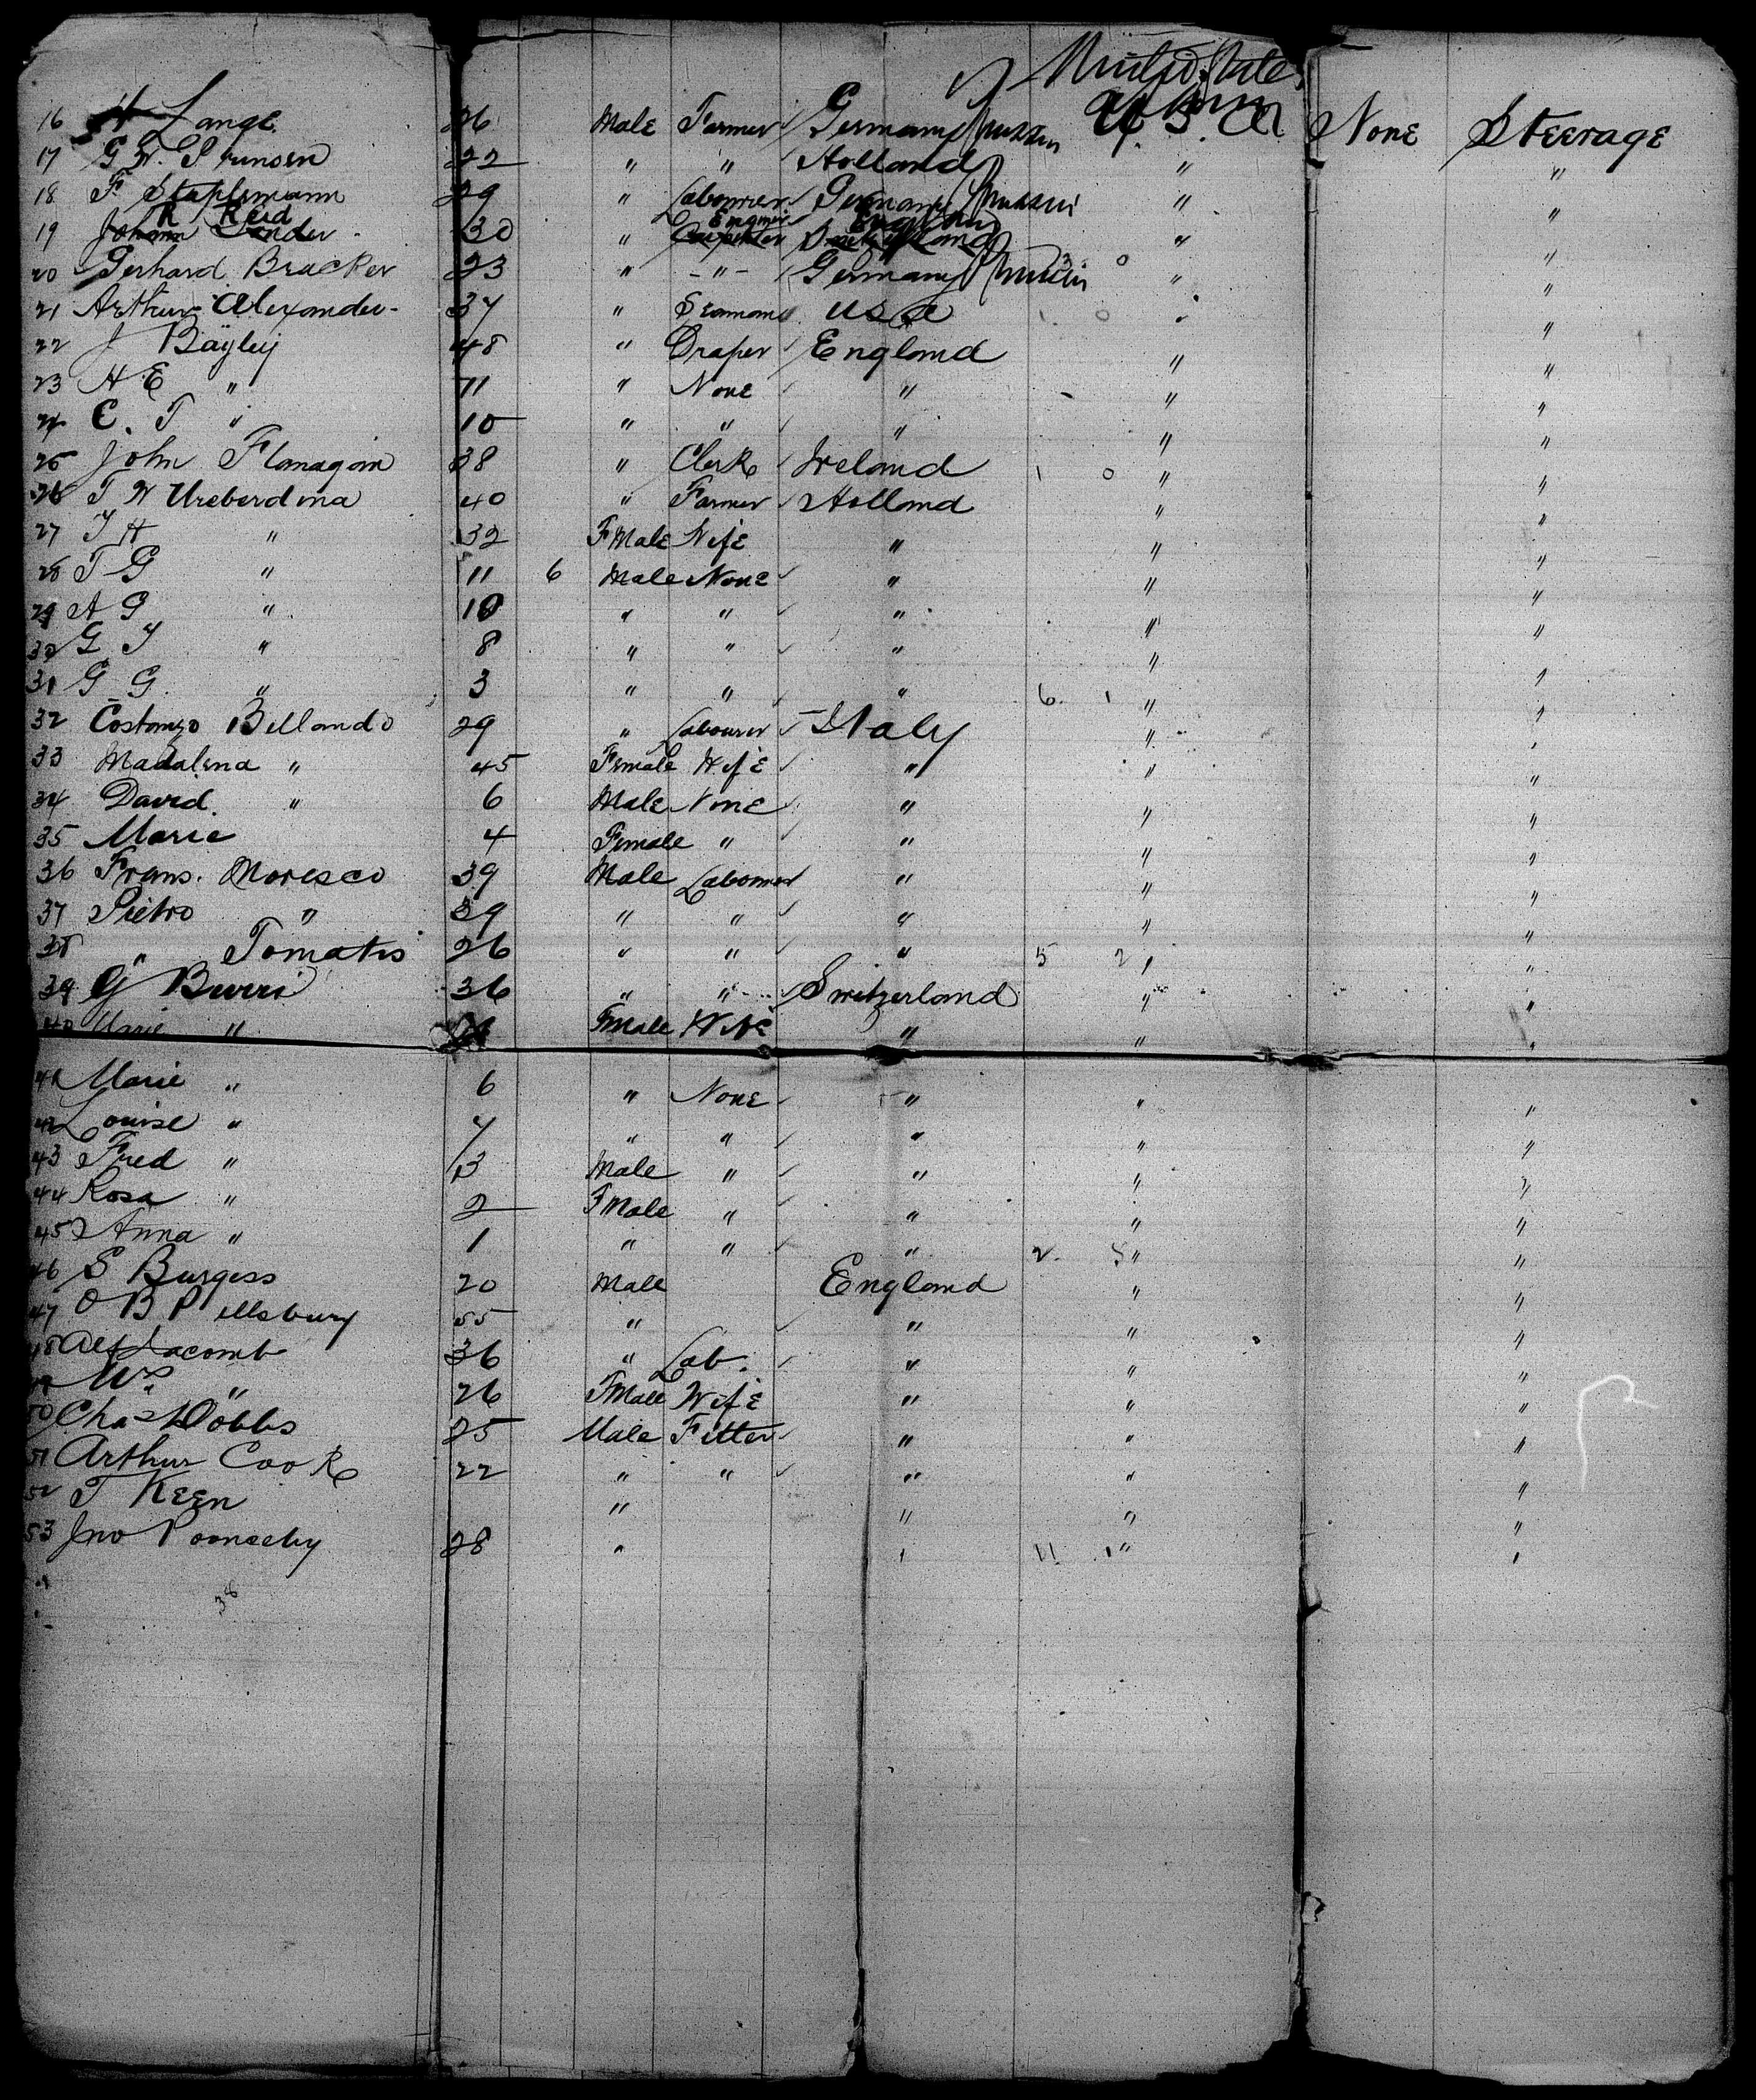 United States
16 H Lange 26 Male Farmer Germany Prussia U.S.A None Steerage
17 G W. 22 " " Holland " "
18 F. Stapelmann 29 " Labourer Germany Prussia " "
19 R Reid 30 " Engineer England " "
20 Gerhard Bracker 23 " -"- Germany Prussia 3 0 " "
21 Arthur Alexander 37 " Seaman USA 1 0 " "
22 J Bayley 48 " Draper England " "
23 H E " 11 " None " " "
24 E. T " 10 " " " " "
25 John Flanagan 38 " Clerk Ireland 1 0 " "
26 T W Ureberdina 40 " Farmer Holland " "
27 T H " 32 FMale Wife " " "
28 T G " 11 6 Male None " " "
29 A G " 10 " " " " "
30 G T " 8 " " " " "
31 G G " 3 " " " 6 1 " "
32 Costanzo Bellando 29 " Labourer Italy " "
33 Madalena " 45 Female Wife " " "
34 David " 6 Male None " " "
35 Marie 4 Female " " " "
36 Frans. Moresco 39 Male Labourer " " "
37 Pietro " 39 " " " " "
38 " Tomatis 26 " " " 5 2 " "
39 G Burri 36 " " Switzerland " "
40 Marie " FMale Wife " " "
41 Marie " 6 " None " " "
42 Louise " 4 " " " " "
43 Fred " 3 Male " " " "
44 Rosa " 2 FMale " " " "
45 Anna " 1 " " " 2 5 " "
46 S Burgess 20 Male England " "
47 O B Pillsbury 55 " " " "
48 Alf Lacomb 36 " Lab. " " "
49 Mrs " 26 FMale Wife " " "
50 Chas Dobbs 25 Male Fitter " " "
51 Arthur Cook 22 " " " " "
52 T Keen " " " "
53 Jno Poonseby 28 " " 11 1 " "
38